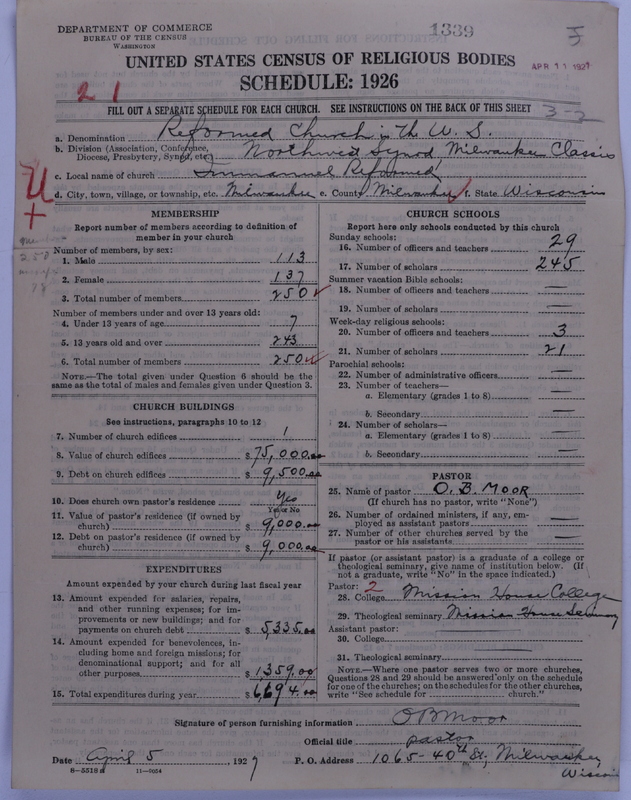 DEPARTMENT OF COMMERCE
BUREAU OF THE CENSUS
WASHINGTON
1339
UNITED STATES CENSUS OF RELIGIOUS BODIES
APR 11 1927
SCHEDULE: 1926
2 1
FILL OUT A SEPARATE SCHEDULE FOR EACH CHURCH. SEE INSTRUCTIONS ON THE BACK OF THIS SHEET
3-2
a. Denomination Reformed Church in the U. S.
b. Division (Association, Conference, Diocese, Presbytery, Synod, etc.) Northwest Synod Milwaukee Classis
c. Local name of church Immanuel Reformed
d. City, town, village, or township, etc. Milwaukee e. County Milwaukee f. State Wisconsin
MEMBERSHIP
Report number of members according to definition of
member in your church
Number of members, by sex:
1. Male 113
2. Female 137
3. Total number of members 250
Number of members under and over 13 years old:
4. Under 13 years of age 7
5. 13 years old and over 243
6. Total number of members 250
NOTE.—The total given under Question 6 should be
same as the total of males and females given under Question 3.
CHURCH BUILDINGS
See instructions, paragraphs 10 to 12
7. Number of church edifices 1
8. Value of church edifices $75,000.00
9. Debt on church edifices $9,500.00
10. Does church own pastor's residence Yes
Yes or No
11. Value of pastor's residence (if owned by
church) $9,000.00
12. Debt on pastor's residence (if owned by
church) $9,000.00
EXPENDITURES
Amount expended by your church during last fiscal year
13. Amount expended for salaries, repairs,
and other running expenses; for im-
provements or new buildings; and for
payments on church debt $5,335.00
14. Amount expended for benevolences, in-
cluding home and foreign missions; for
denominational support; and for all
other purposes $1,359.00
15. Total expenditures during year $6,694.00
CHURCH SCHOOLS
Report here only schools conducted by this church
Sunday schools:
16. Number of officers and teachers 29
17. Number of scholars 245
Summer vacation Bible schools:
18. Number of officers and teachers —
19. Number of scholars —
Week-day religious schools:
20. Number of officers and teachers 3
21. Number of scholars 21
Parochial schools:
22. Number of administrative officers —
23. Number of teachers—
a. Elementary (grades 1 to 8) —
b. Secondary —
24. Number of scholars—
a. Elementary (grades 1 to 8) —
b. Secondary —
PASTOR
25. Name of pastor O. B. MOOR
(If church has no pastor, write "None")
26. Number of ordained ministers, if any, em-
ployed as assistant pastors —
27. Number of other churches served by the
pastor or his assistants —
If pastor (or assistant pastor) is a graduate of a college or
theological seminary, give name of institution below. (If
not a graduate, write "No" in the space indicated.)
Pastor: 2
28. College Mission House College
29. Theological seminary Mission House Seminary
Assistant pastor:
30. College
31. Theological seminary
NOTE.—Where one pastor serves two or more churches,
Questions 28 and 29 should be answered only on the schedule
for one of the churches; on the schedules for the other churches,
write "See schedule for church."
Signature of person furnishing information O B Moor
Official title pastor
Date April 5 1927 P. O. Address 1065-40th St, Milwaukee
8-5518a 11-7654